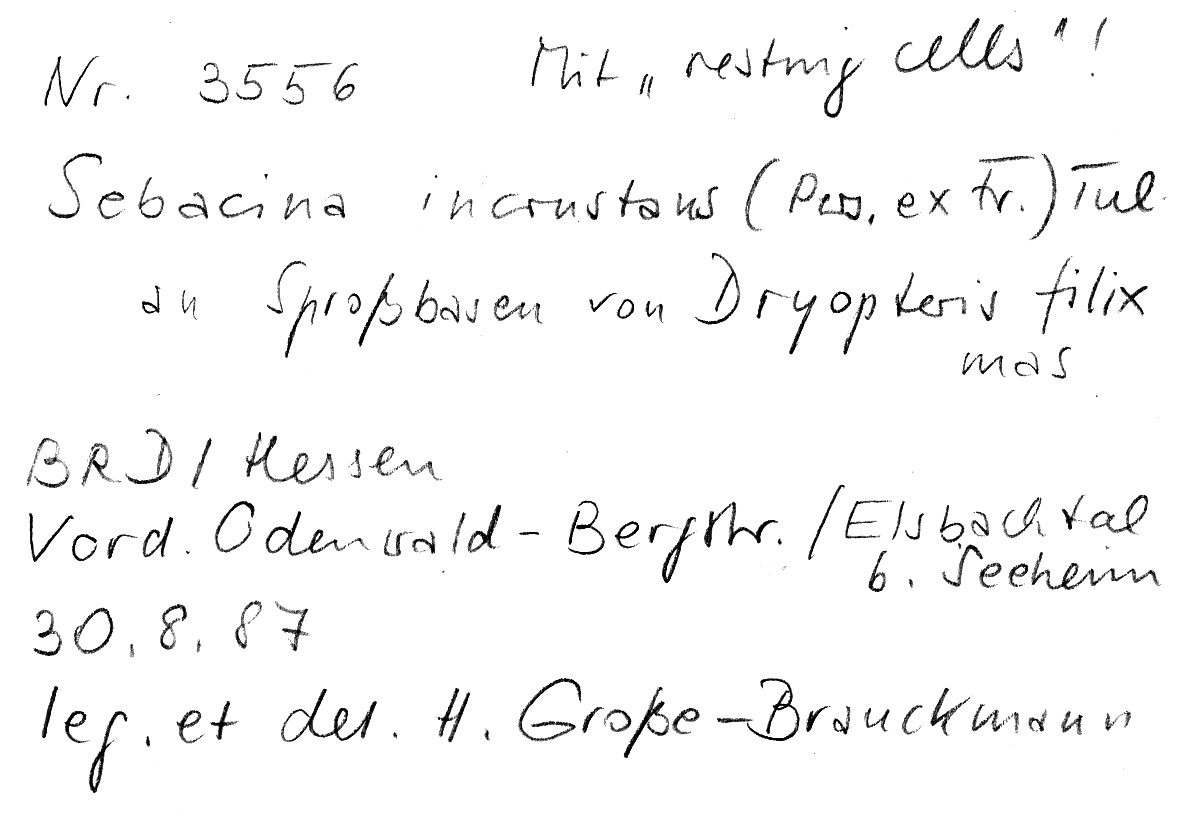 Nr. 3556 Mit „resting cells"!
Sebacina incrustans (Pers. ex Fr.) Tul.
an Sproßbasen von Dryopteris filix
mas
BRD / Hessen
Vord. Odenwald - Bergstr. / Elsbachtal
b. Seeheim
30.8.87
leg. et det. H. Große-Brauckmann